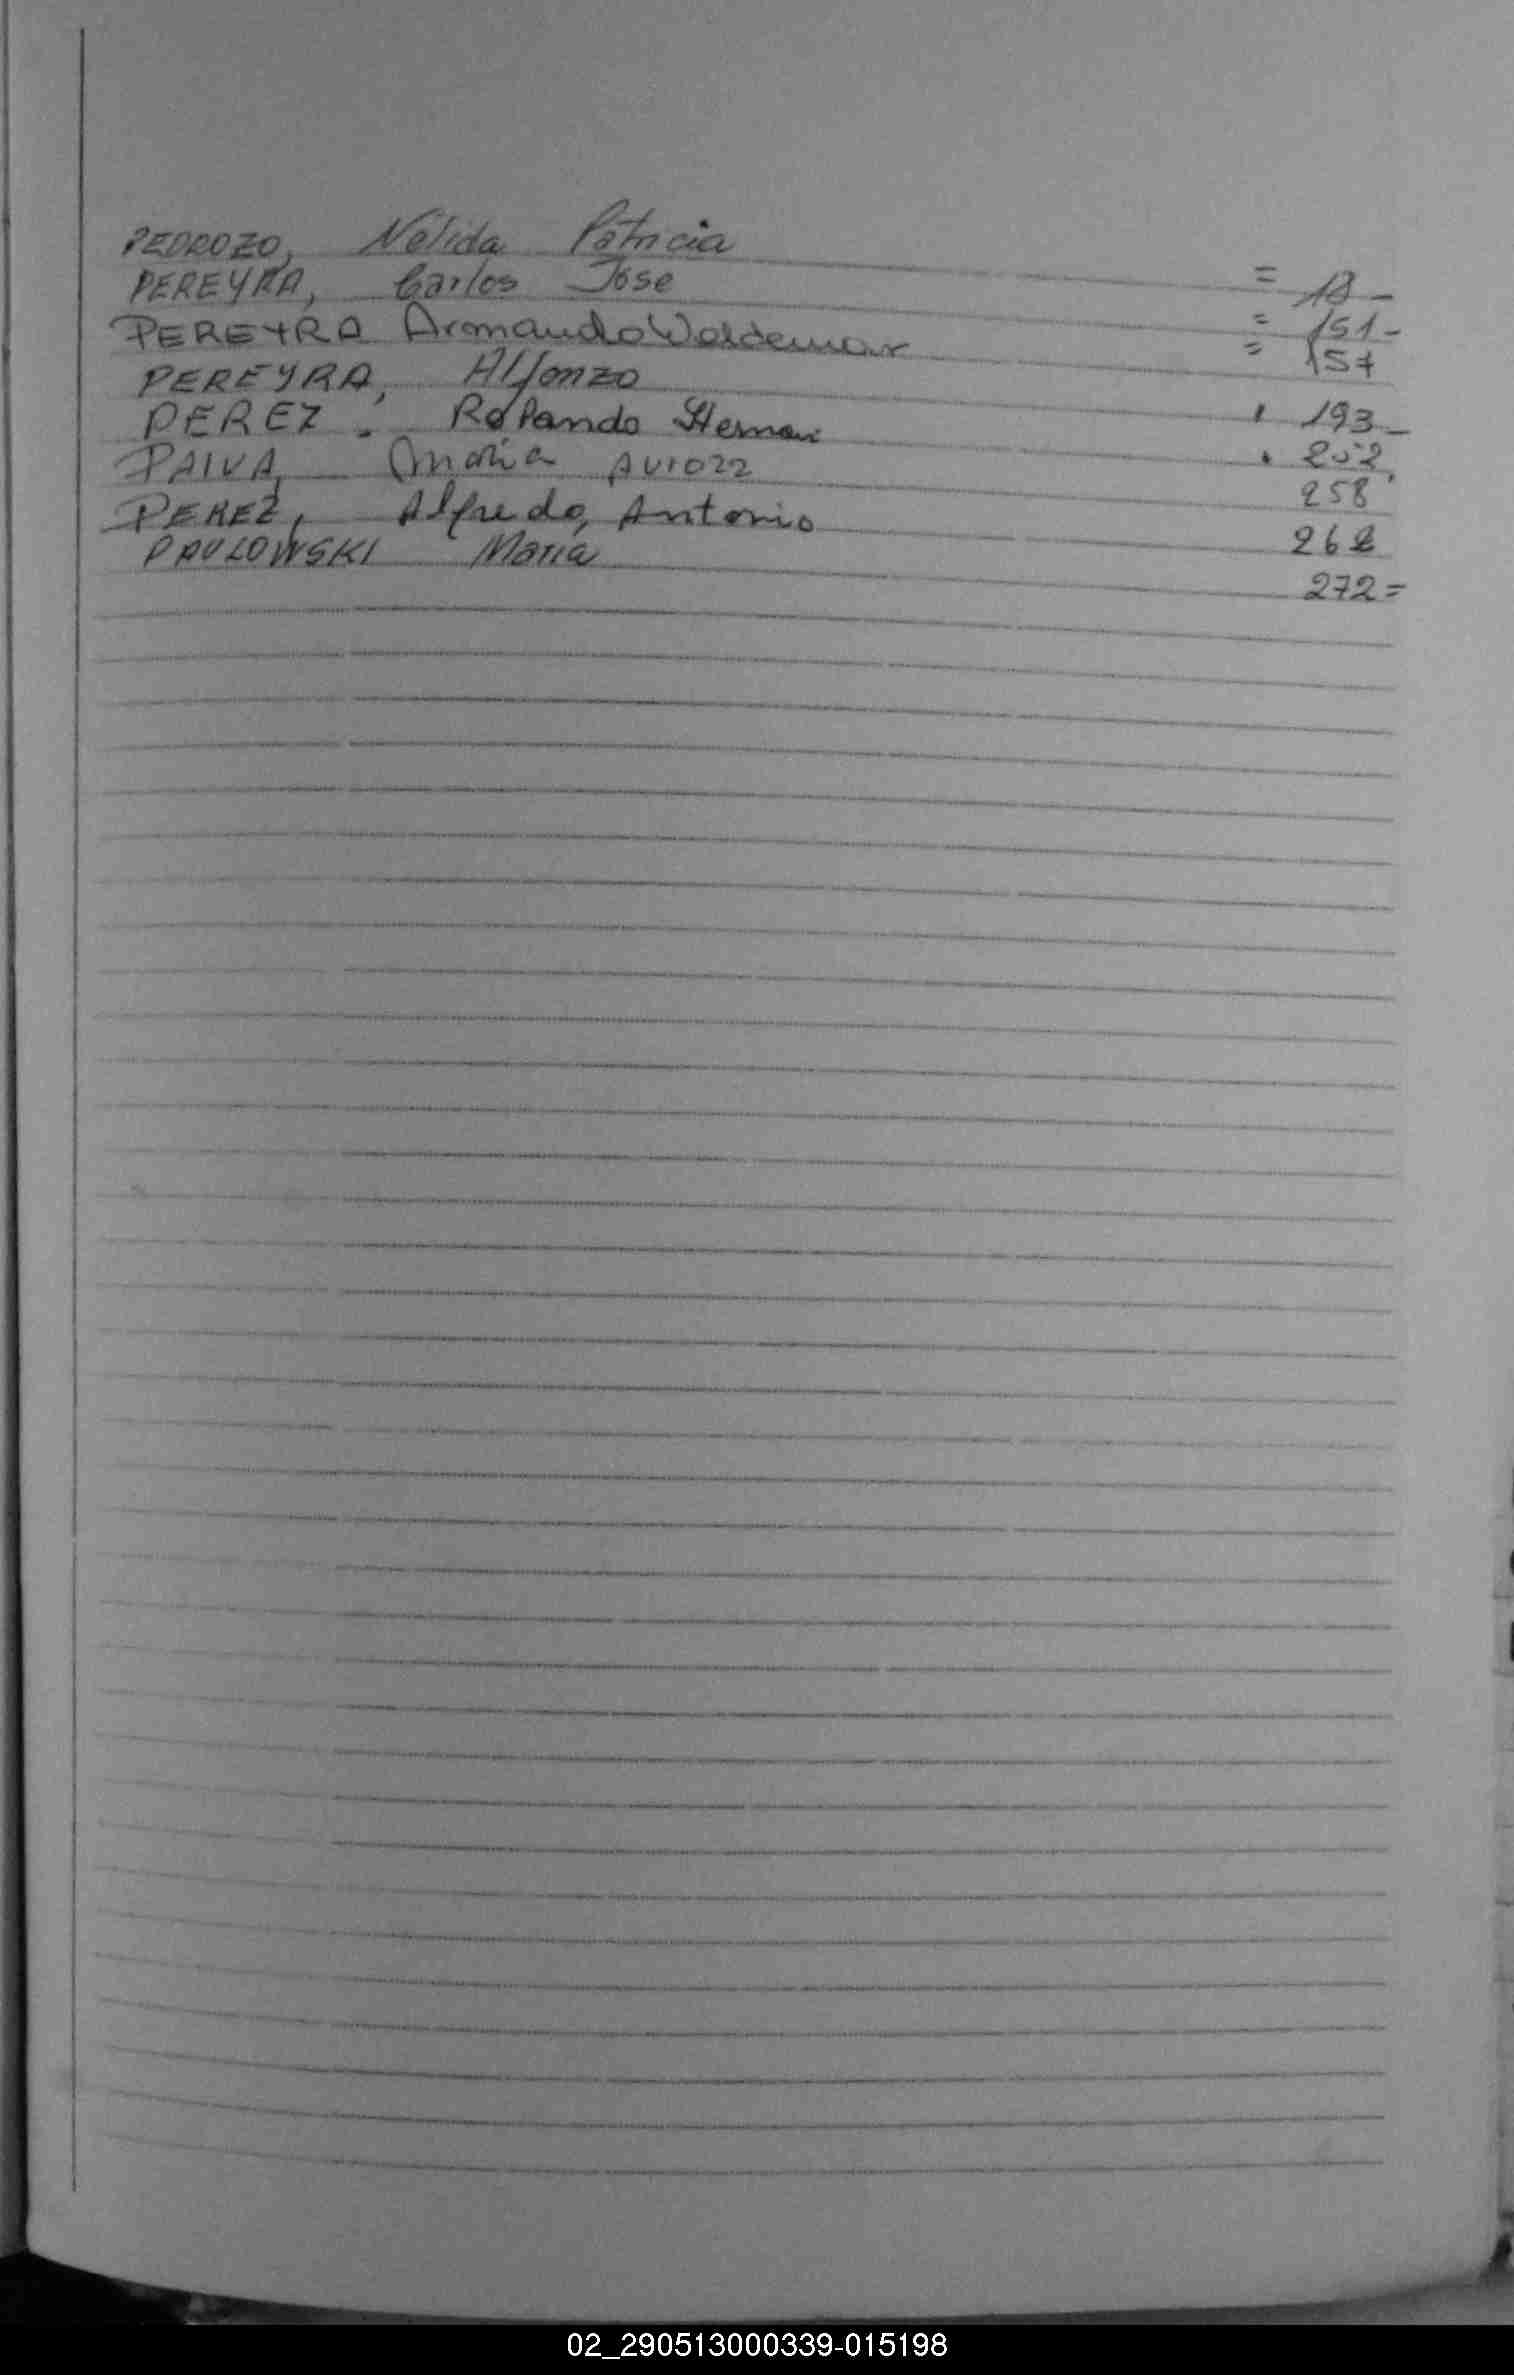 PEDROZO, Nélida Patricia = 18 -
PEREYRA, Carlos Jose = 151 -
PEREYRA Armando Waldemar = 157
PEREYRA, Alfonzo " 193 -
PEREZ . Rolando Hernan " 252
PAIVA, Maria 258
PEREZ, Alfredo, Antonio 262
PAVLOWSKI Maria 272 =
02_290513000339-015198